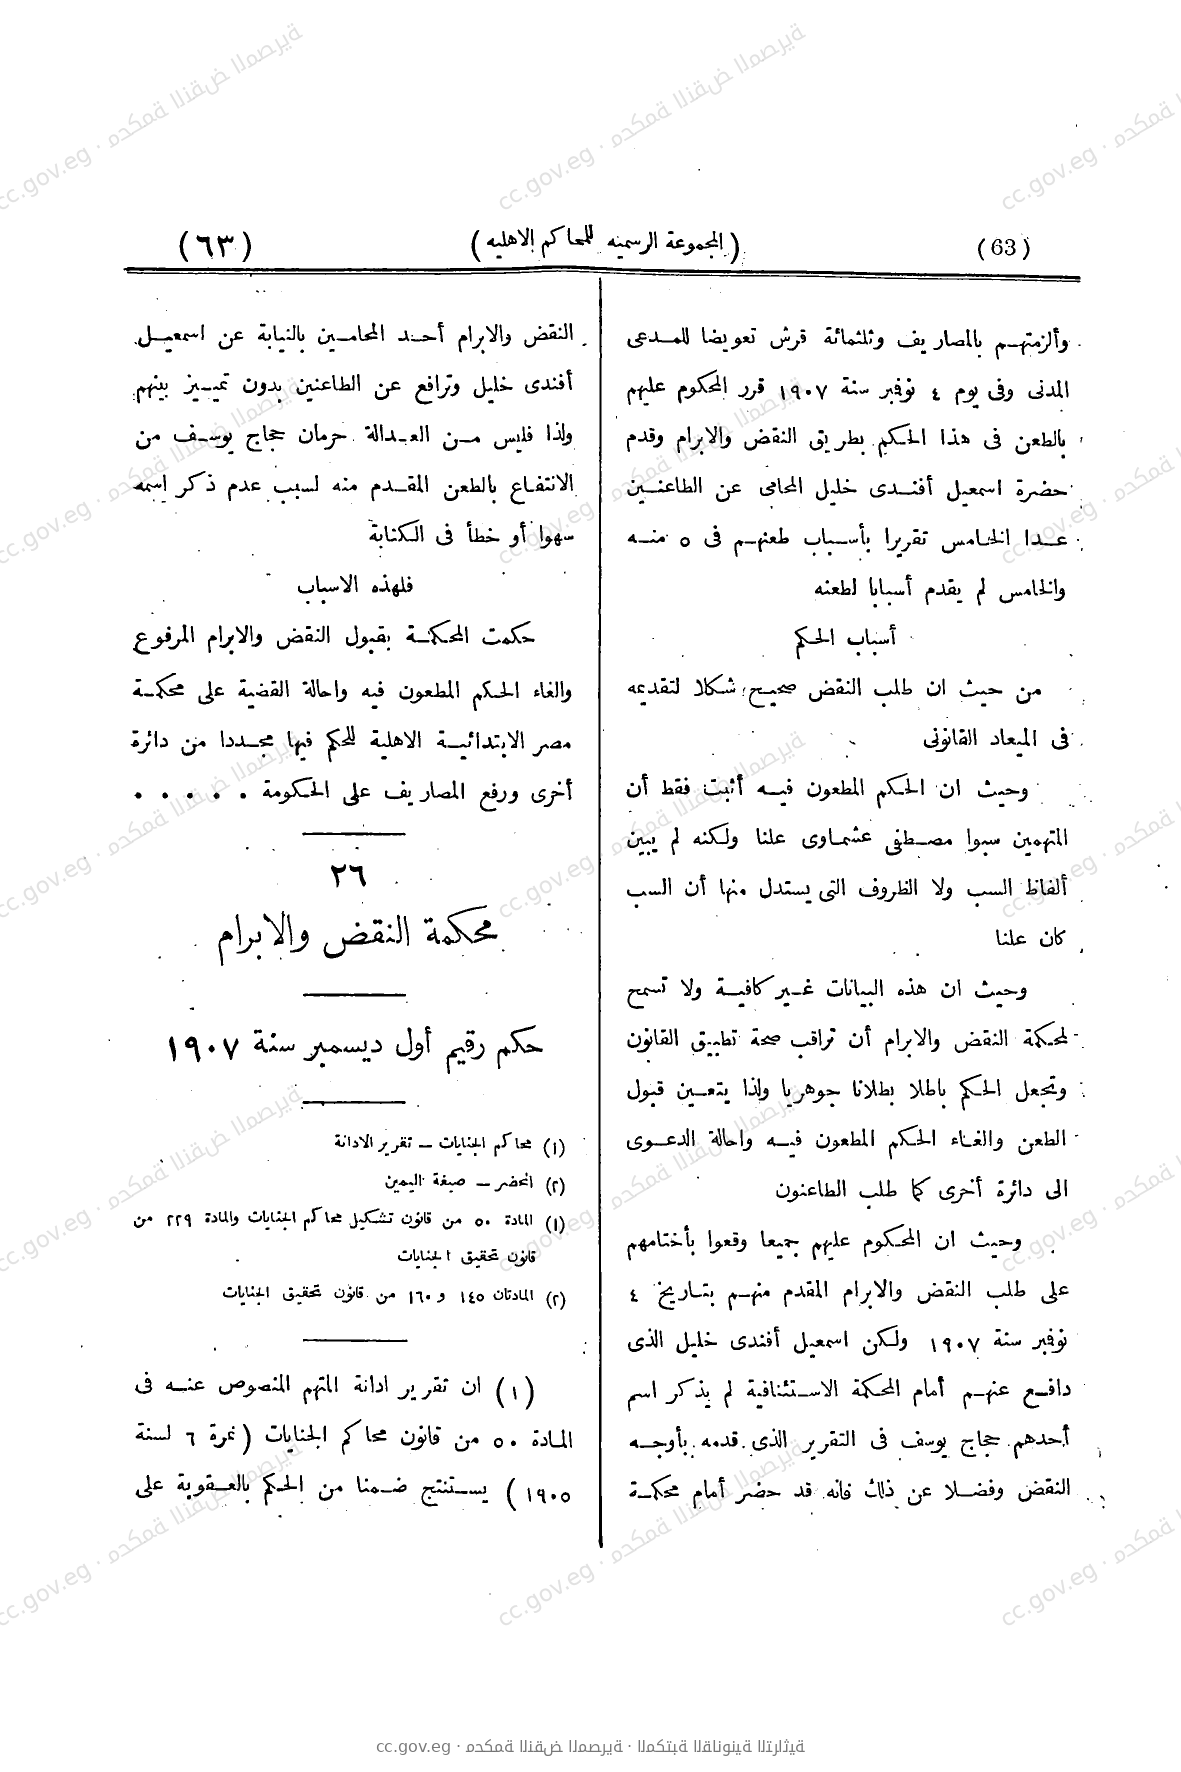 (63) (المجموعة الرسمية للمحاكم الاهلية) (٦٣)
وألزمتهم بالمصاريف وثلثمائة قرش تعويضا للمدعى
المدنى وفى يوم ٤ نوفمبر سنة ١٩٠٧ قرر المحكوم عليهم
بالطعن فى هذا الحكم بطريق النقض والابرام وقدم
حضرة اسمعيل أفندى خليل المحامى عن الطاعنين
عدا الخامس تقريرا بأسباب طعنهم فى ٥ منه
والخامس لم يقدم أسبابا لطعنه
أسباب الحكم
من حيث ان طلب النقض صحيح شكلا لتقديمه
فى الميعاد القانونى
وحيث ان الحكم المطعون فيه أثبت فقط أن
المتهمين سبوا مصطفى عشماوى علنا ولكنه لم يبين
ألفاظ السب ولا الظروف التى يستدل منها أن السب
كان علنا
وحيث ان هذه البيانات غير كافية ولا تسمح
لمحكمة النقض والابرام أن تراقب صحة تطبيق القانون
وتجعل الحكم باطلا بطلانا جوهريا ولذا يتعين قبول
الطعن والغاء الحكم المطعون فيه واحالة الدعوى
الى دائرة أخرى كما طلب الطاعنون
وحيث ان المحكوم عليهم جميعا وقعوا بأختامهم
على طلب النقض والابرام المقدم منهم بتاريخ ٤
نوفمبر سنة ١٩٠٧ ولكن اسمعيل أفندى خليل الذى
دافع عنهم أمام المحكمة الاستئنافية لم يذكر اسم
أحدهم حجاج يوسف فى التقرير الذى قدمه بأوجه
النقض وفضلا عن ذلك فانه قد حضر أمام محكمة
النقض والابرام أحد المحامين بالنيابة عن اسمعيل
أفندى خليل وترافع عن الطاعنين بدون تمييز بينهم
ولذا فليس من العدالة حرمان حجاج يوسف من
الانتفاع بالطعن المقدم منه لسبب عدم ذكر اسمه
سهوا أو خطأ فى الكتابة
فلهذه الاسباب
حكمت المحكمة بقبول النقض والابرام المرفوع
والغاء الحكم المطعون فيه واحالة القضية على محكمة
مصر الابتدائية الاهلية للحكم فيها مجددا من دائرة
أخرى ورفع المصاريف على الحكومة . . . . .
٢٦
محكمة النقض والابرام
حكم رقيم أول ديسمبر سنة ١٩٠٧
(١) محاكم الجنايات — تقرير الادانة
(٢) المحضر — صيغة اليمين
(١) المادة ٥٠ من قانون تشكيل محاكم الجنايات والمادة ٢٢٩ من
قانون تحقيق الجنايات
(٢) المادتان ١٤٥ و ١٦٠ من قانون تحقيق الجنايات
(١) ان تقرير ادانة المتهم المنصوص عنه فى
المادة ٥٠ من قانون محاكم الجنايات (نمرة ٦ لسنة
١٩٠٥) يستنتج ضمنا من الحكم بالعقوبة على
cc.gov.eg · محكمة النقض المصرية · المكتبة القانونية التراثية